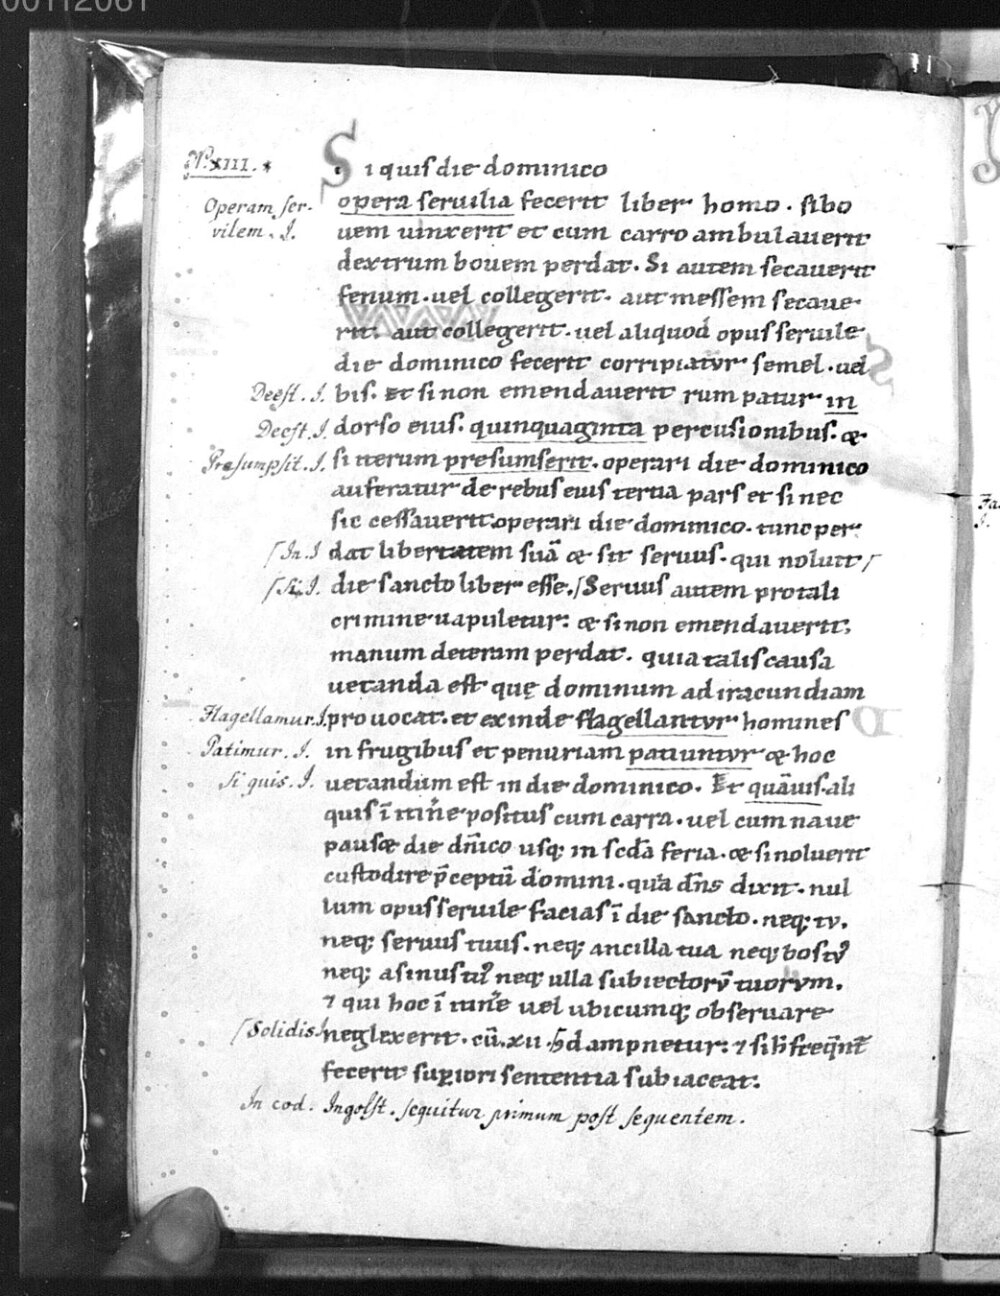 00112061
N. XIII.
Si quis die dominico
Operam ser-
opera seruilia fecerit liber homo. si bo
vilem. I.
uem uinxerit et cum carro ambulauerit
dextrum bouem perdat. Si autem secauerit
fenum. uel collegerit. aut messem secaue
rit. aut collegerit. uel aliquod opus seruile
die dominico fecerit corripiatur semel. uel
Deest. I.
bis. Et si non emendauerit rum patur in
Deest. I.
dorso eius. quinquaginta percusionibus. &
Præsumpsit. I.
si iterum presumserit. operari die dominico
auferatur de rebus eius tertia pars et si nec
sic cessauerit operari die dominico. tunc per
/In. I
dat libertatem suā & sit seruus. qui noluit /
/Si. I.
die sancto liber esse. / Seruus autem pro tali
crimine uapuletur: & si non emendauerit,
manum deteram perdat. quia talis causa
uetanda est quę dominum ad iracundiam
Flagellamur. I.
prouocat. et exinde flagellantur homines
Patimur. I.
in frugibus et penuriam patiuntur & hoc
Si quis. I.
uetandum est in die dominico. Et quāuis. ali
quis ī itin̄e positus cum carra. uel cum naue
paus& die dn̄ico usq; in scd̄a feria. & si noluerit
custodire p̄ceptū domini. quia dn̄s dixit. nul
lum opus seruile facias ī die sancto. neq; tu.
neq; seruus tuus. neq; ancilla tua neq; bos tuꝰ
neq; asinus tuꝰ neq; ulla subiectorū tuorum.
⁊ qui hoc ī itin̄e uel ubicumq; obseruare
/Solidis I.
neglexerit. cū. xii. sł dampnetur: ⁊ si h̄ freq̄nt̄
fecerit suꝑiori sententia subiaceat.
In cod. Ingolst. sequitur primum post sequentem.